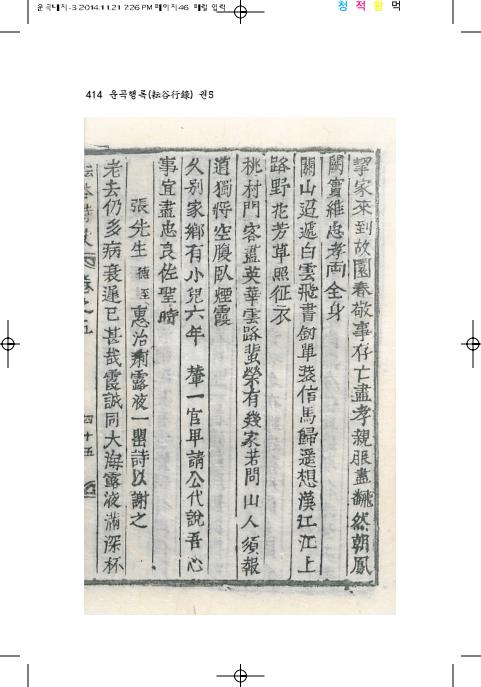 운곡내지-3 2014.11.21 7:26 PM 페이지46 매일 입력
청 적 황 먹
414 운곡행록(耘谷行錄) 권5
挈家來到故園春敬事存亡盡孝親服盡飜然朝鳳
闕實維忠孝兩全身
關山迢遞白雲飛書劒單裝信馬歸遥想漢江江上
路野花芳草照征衣
桃村門客盡英華雲路蜚榮有幾家若問山人須報
道獨將空腹臥煙霞
久别家鄉有小兒六年 輦一官卑請公代說吾心
事宜盡忠良佐聖時
張先生 德至 惠治痢露液一壘詩以謝之
老去仍多病衰遲已甚哉霞誠同大海露液滿深杯
卷之五
四十五